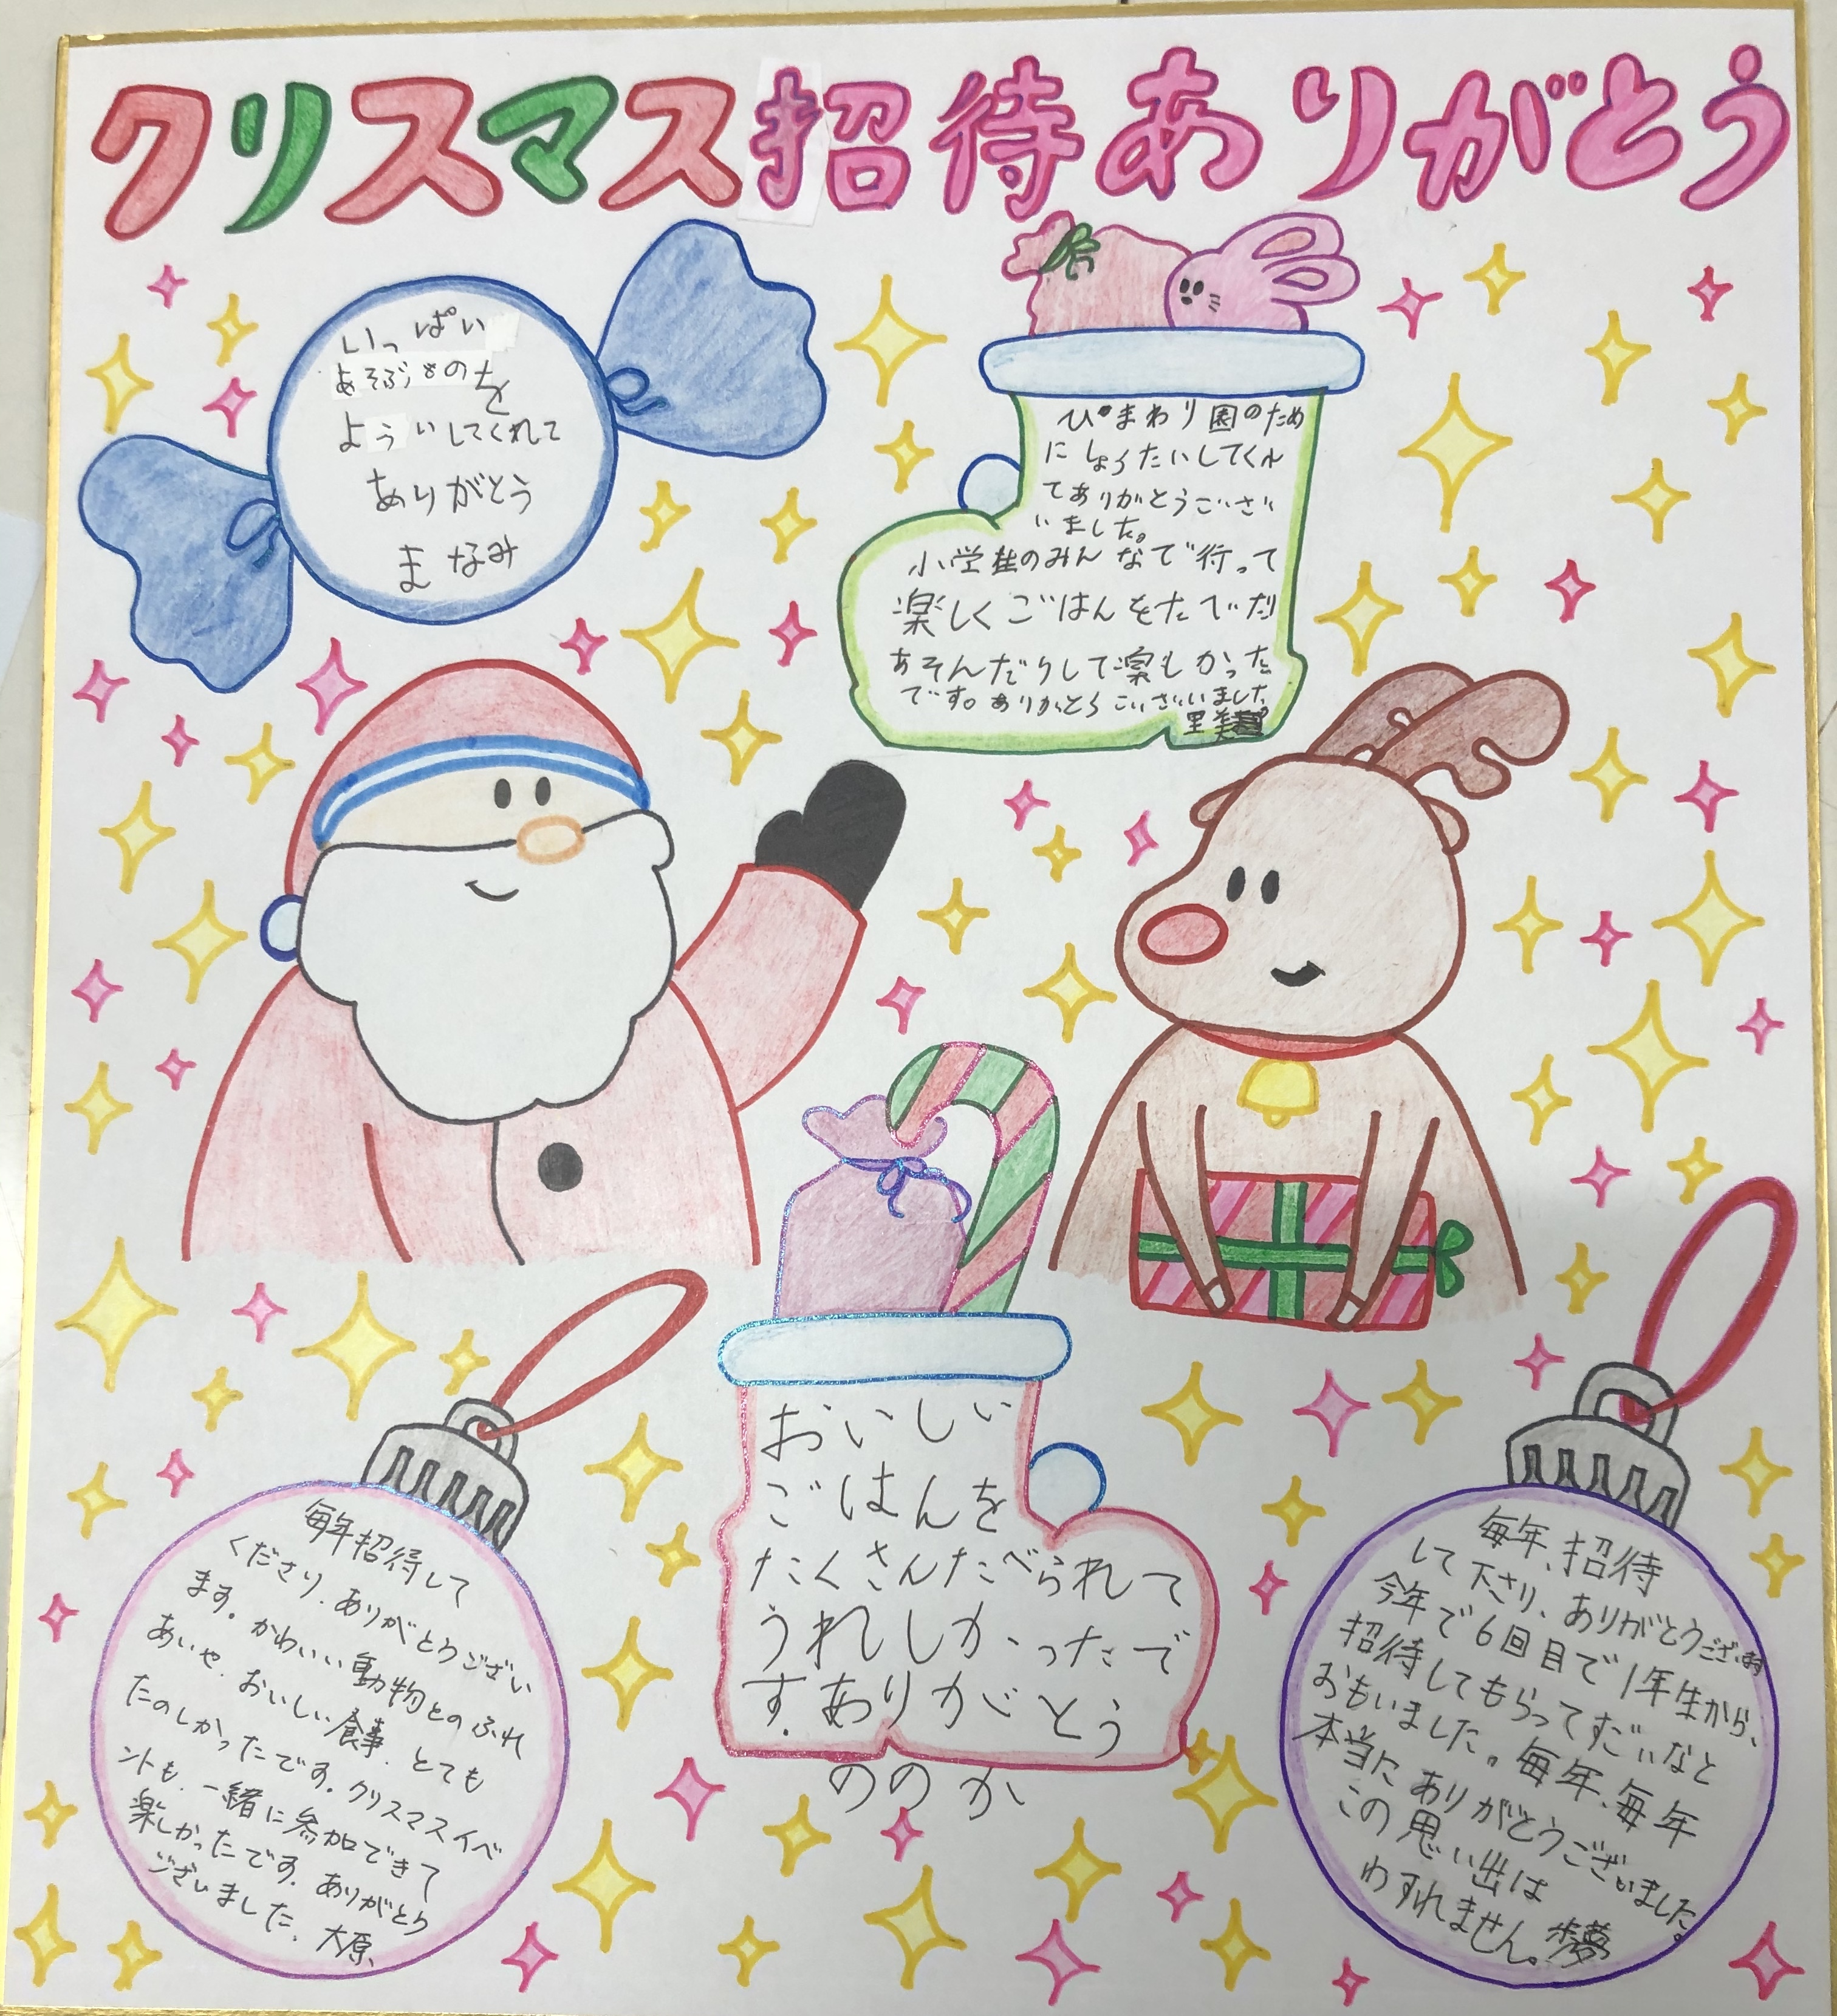 クリスマス招待ありがとう
いっぱい
あそぶものを
よういしてくれて
ありがとう
まなみ
ひまわり園のため
にしょうたいしてくれ
てありがとうござ
いました。
小学生のみんなで行って
楽しくごはんをたべたり
あそんだりして楽しかった
です。ありがとうございました
里美
おいしい
ごはんを
たくさんたべられて
うれしかったで
す.ありがとう
ののか
毎年招待して
くださり、ありがとうござい
ます。かわいい動物とのふれ
あいや、おいしい食事、とても
たのしかったです。クリスマスイベ
ントも、一緒に参加できて
楽しかったです。ありがとう
ございました、大原、
毎年、招待
して下さり、ありがとうございます
今年で6回目で1年生から、
招待してもらってすごいなと
おもいました。毎年、毎年
本当にありがとうございました。
この思い出は
わすれません。歩夢